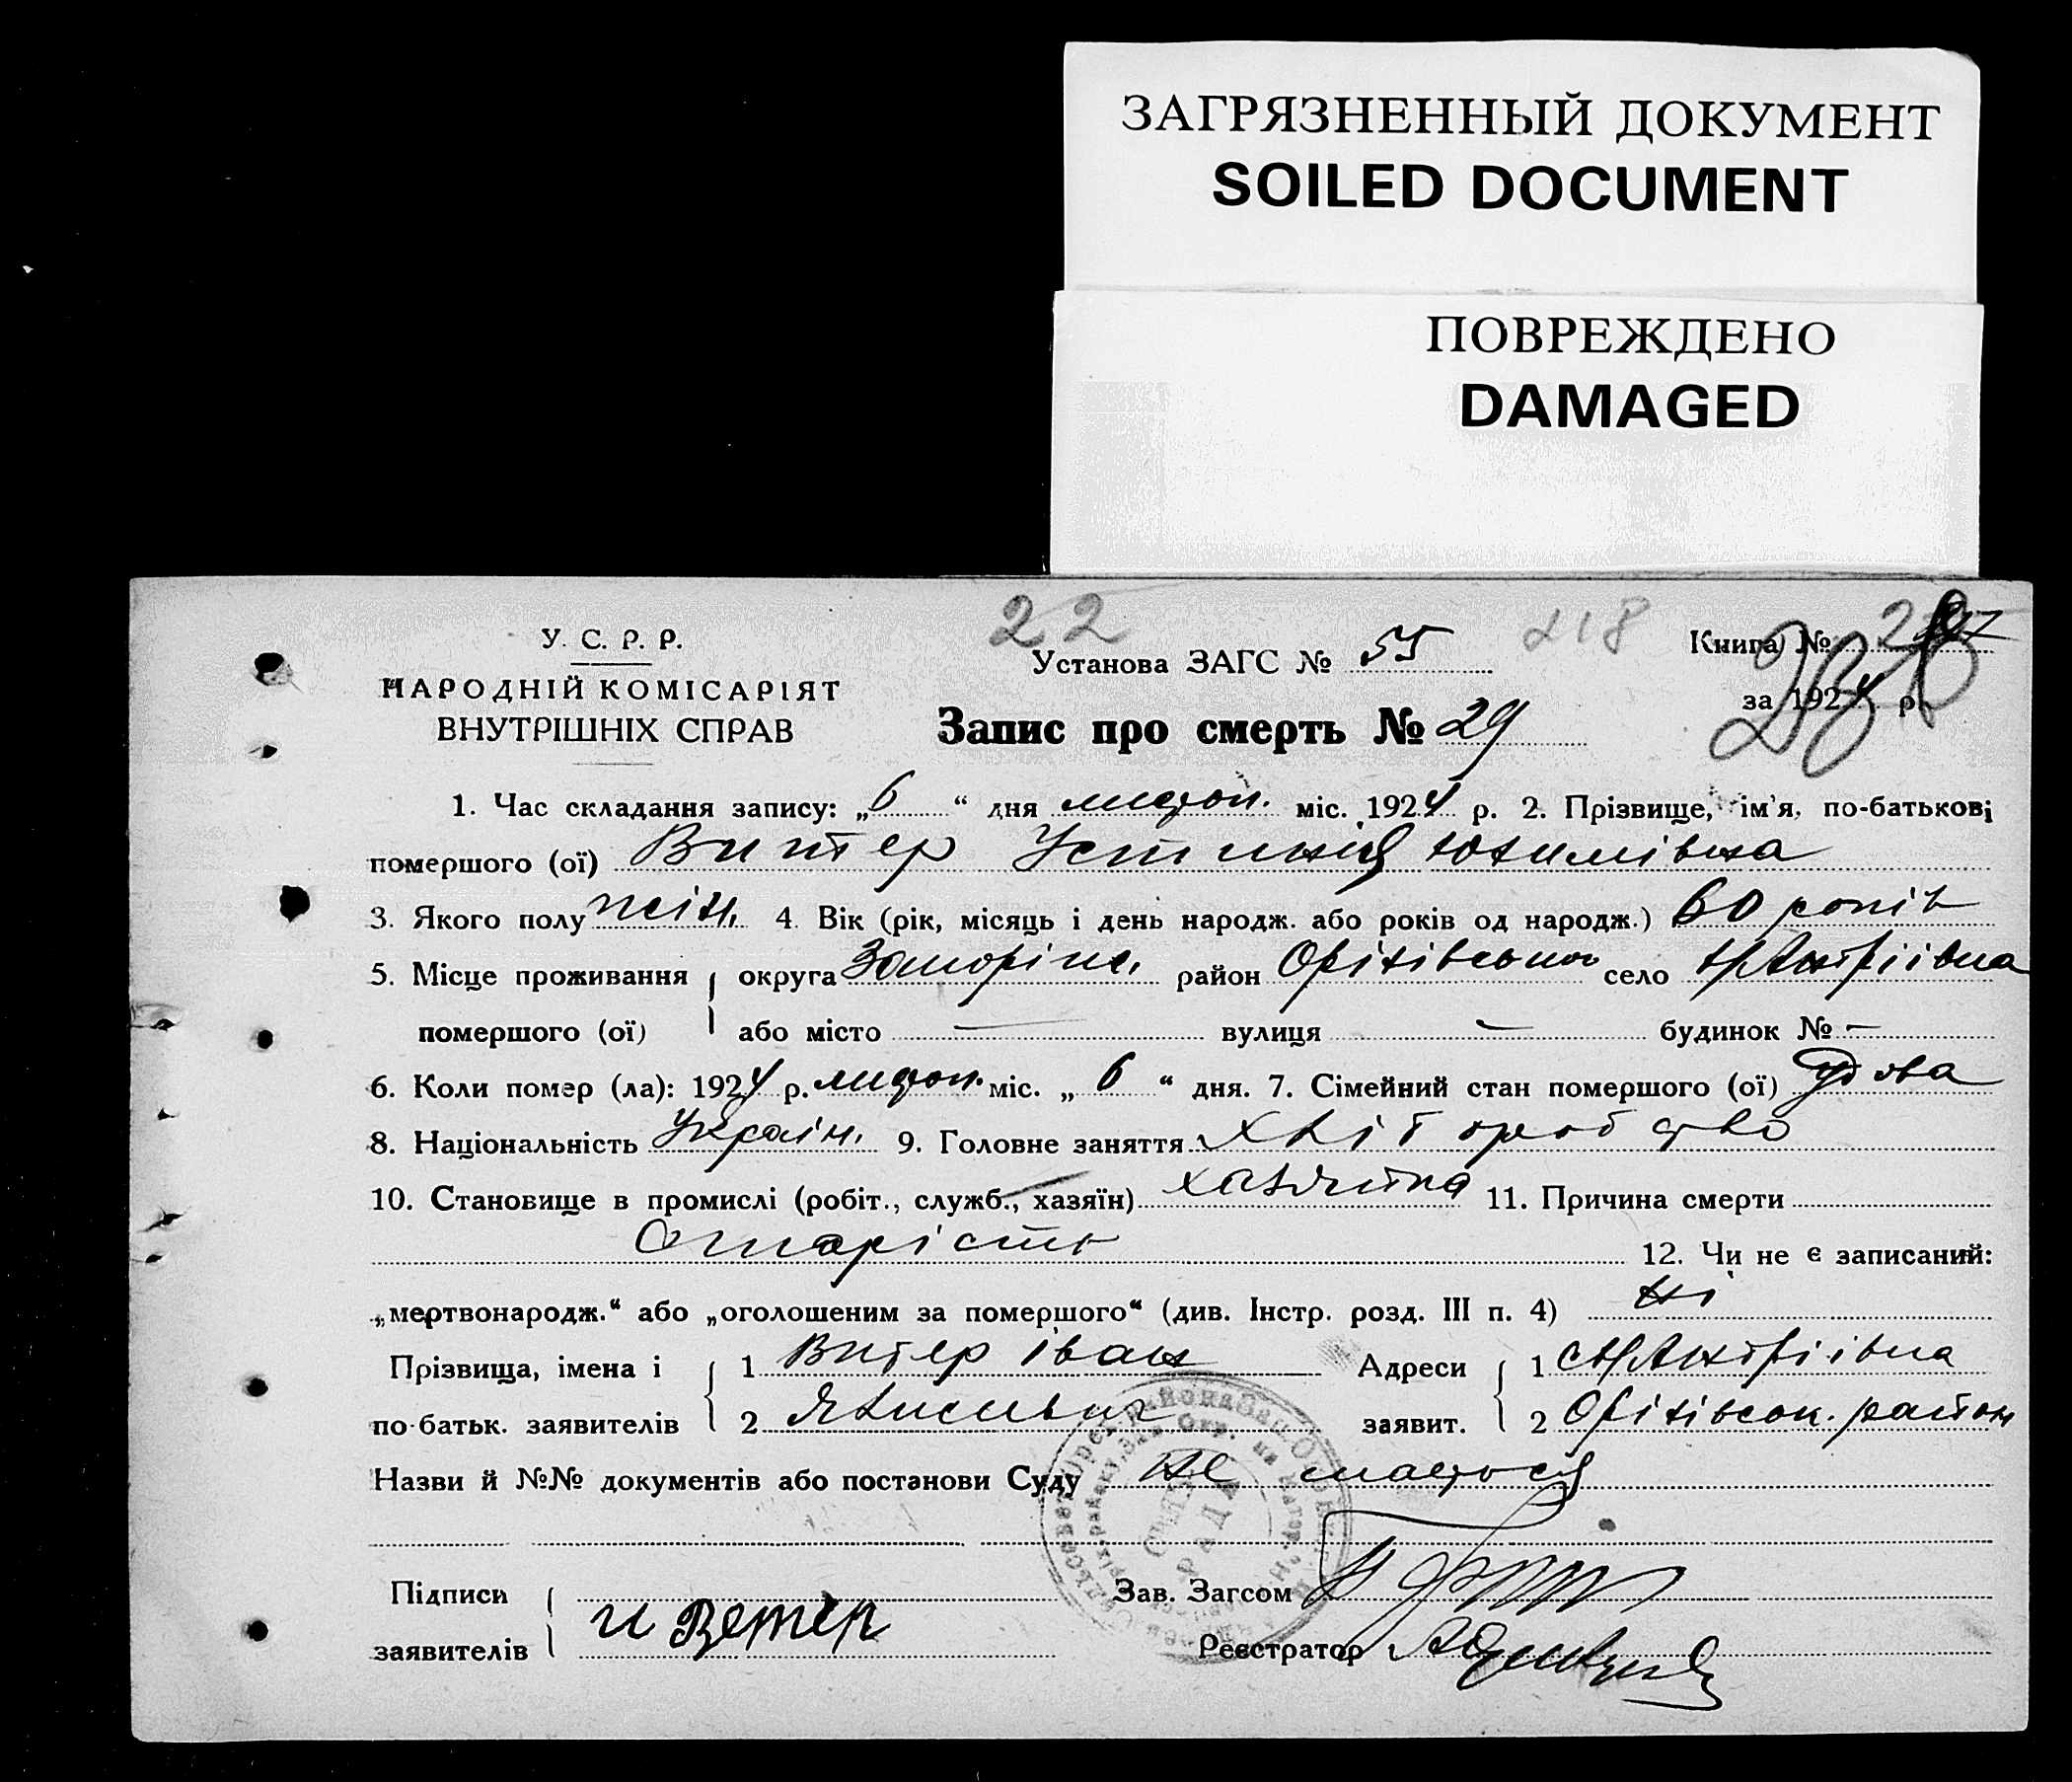 ЗАГРЯЗНЕННЫЙ ДОКУМЕНТ
SOILED DOCUMENT
ПОВРЕЖДЕНО
DAMAGED
22 218
У. С. Р. Р.
НАРОДНІЙ КОМІСАРІЯТ
ВНУТРІШНІХ СПРАВ
Установа ЗАГС № 55
Книга №
за 1924 р.
Запис про смерть № 29
1. Час складання запису: „6“ дня листоп. міс. 1924 р. 2. Прізвище, ім'я, по-батькові
померлого (ої) Витер Устинія Юхимівна
3. Якого полу жін. 4. Вік (рік, місяць і день народж. або років од народж.) 60 років
5. Місце проживання округа Запоріж. район Оріхівського село
померлого (ої) або місто — вулиця — будинок № —
6. Коли помер (ла): 1924 р. листоп. міс. „6“ дня. 7. Сімейний стан померлого (ої) удова
8. Національність Україн. 9. Головне заняття Хліборобство
10. Становище в промислі (робіт., служб., хазяїн) хазяйка 11. Причина смерти
Старість 12. Чи не є записаний:
„мертвонародж.“ або „оголошеним за померлого“ (див. Інстр. розд. III п. 4) Ні
Прізвища, імена і 1 Витер Іван Адреси 1
по-батьк. заявителів 2 заявит. 2 Оріхівськ. район
Назви й №№ документів або постанови Суду Не мається
РАДА
Підписи Зав. Загсом
заявителів и Ветер Реєстратор